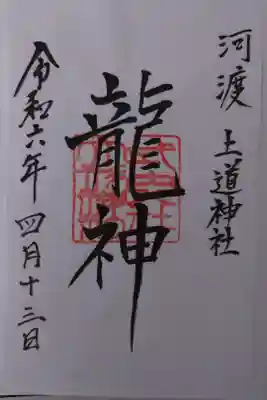 河渡 土道神社
龍神
令和六年 四月十三日